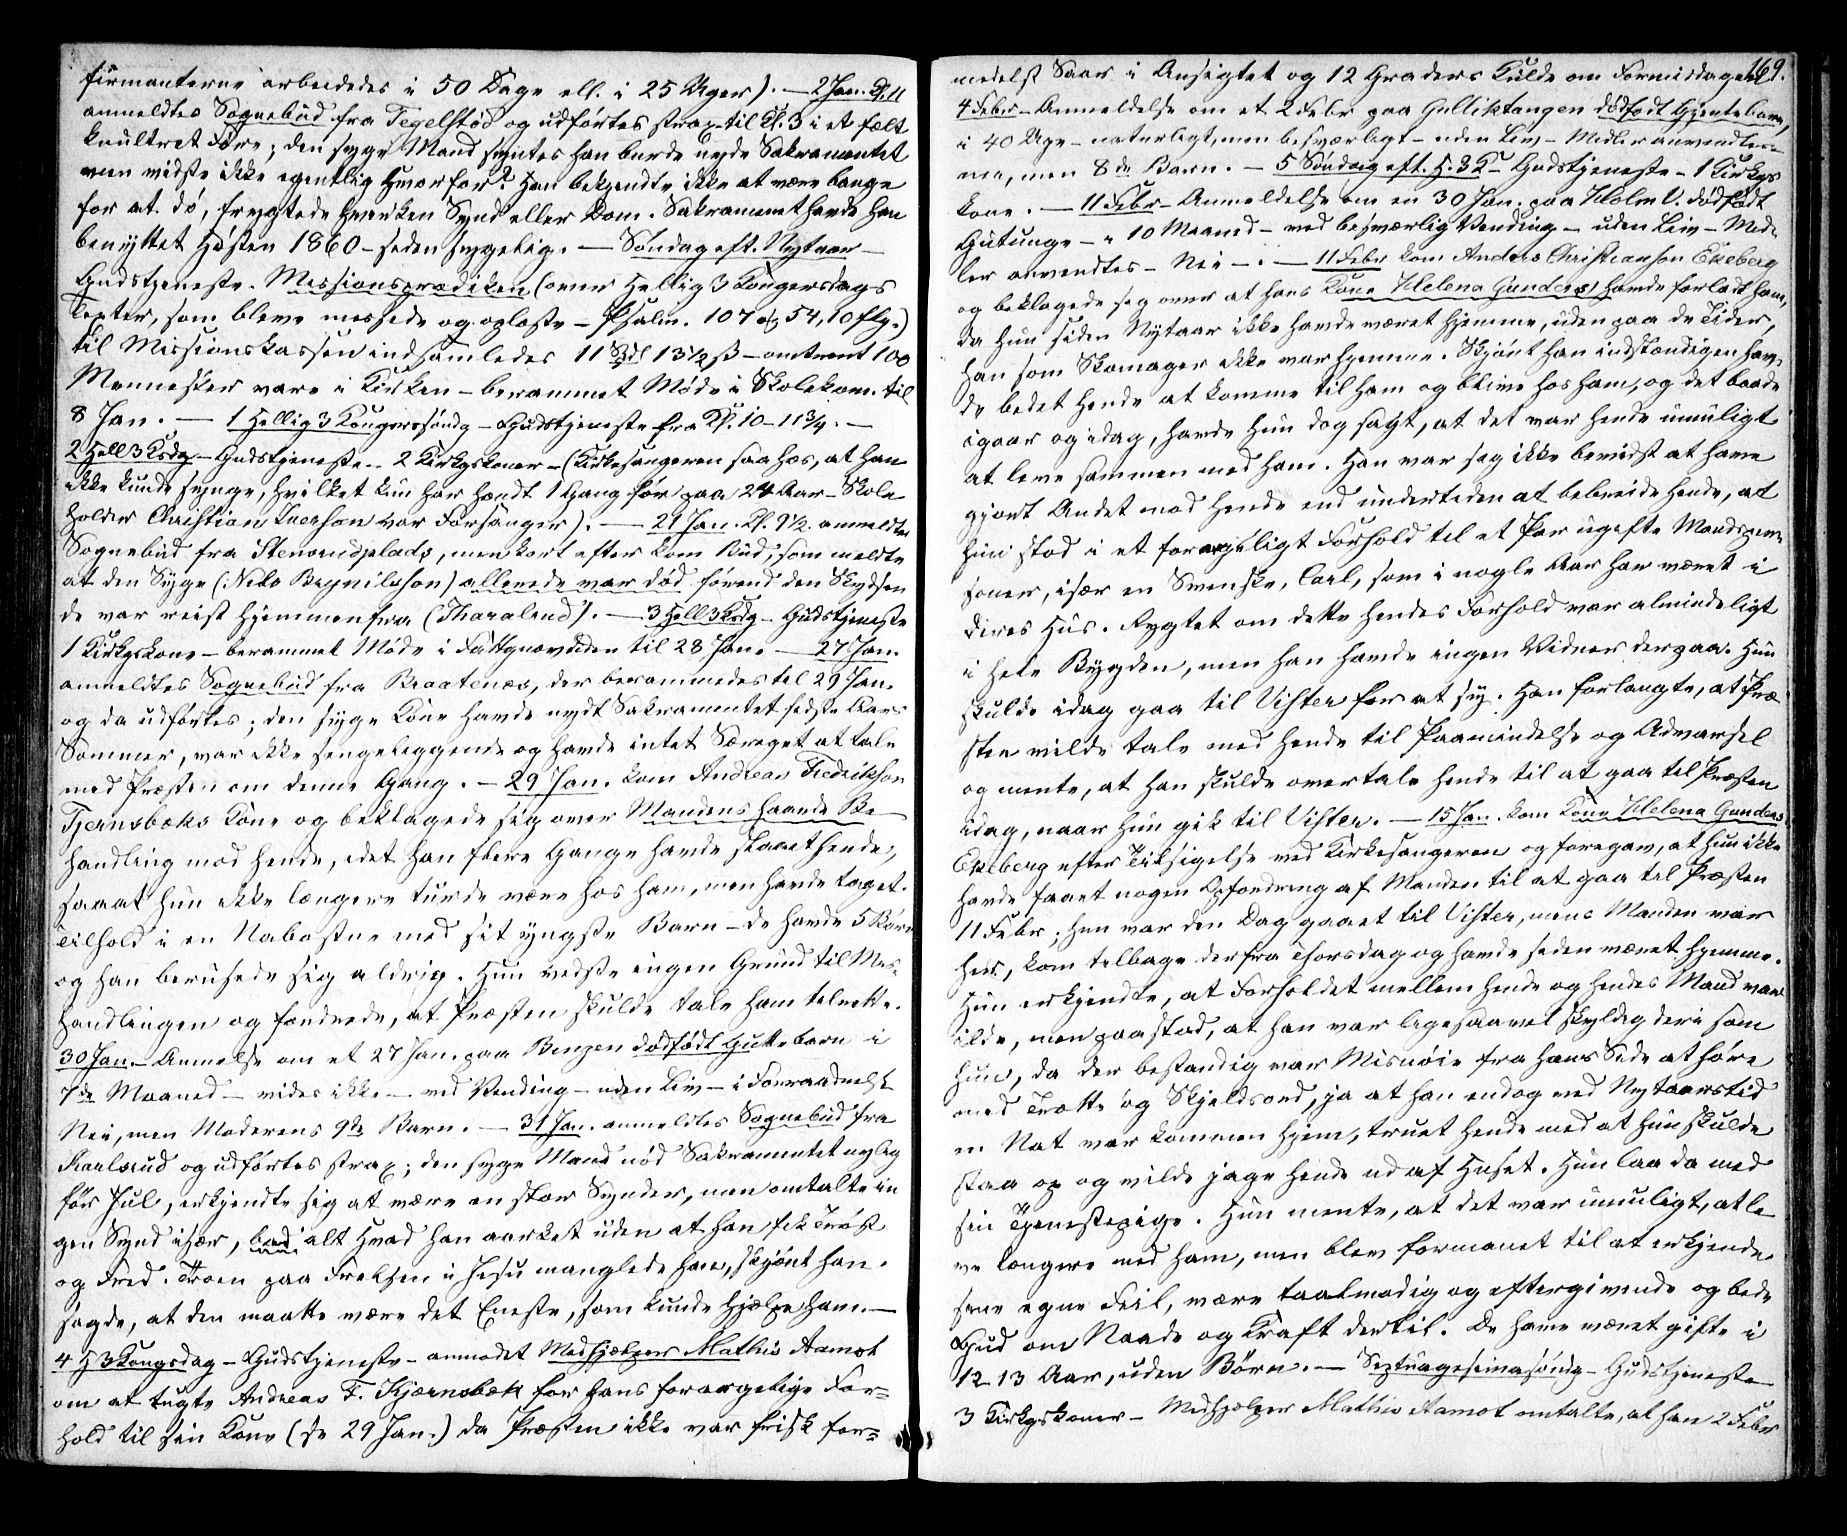 firmanterne arbeidedes i 50 Dage ell. i 25 Uger). — 2 Jan. Kl. 11
anmeldtes Sognebud fra Tegelstød og udførtes strax til Kl. 3 i et fælt
knultret Føre; den syge Mand syntes han burde nyde Sakramentet
men vidste ikke egentlig hvorfor? Han bekjendte ikke at være bange
for at dø, frygtede hverken Synd eller Dom. Sakramentet havde han
benyttet Høsten 1860 – siden sygelig. — Søndag eft. Nytaar –
Gudstjeneste. Missionsprædiken (over Hellig 3 Kongersdags
Texter, som bleve messede og oplæste – Psalm. 107 og 54, 10 flg.)
til Missionskassen indsamledes 11 Spdl 13½ ß – omtrent 100
Mennesker vare i Kirken – berammet Møde i Skolekom. til
8 Jan. — 1 Hellig 3 Kongerssøndg – Gudstjeneste fra Kl. 10 – 11¾. —
2 Hell 3 Ksdg – Gudstjeneste – 2 Kirkgskoner – (Kirkesangeren saa hæs, at han
ikke kunde synge, hvilket kun har hændt 1 Gang før paa 24 Aar – Skole
holder Christian Iverson var Forsanger). — 21 Jan. Kl. 9½ anmeldtes
Sognebud fra Stensrudplads, men kort efter kom Bud, som meldte
at den Syge (Nils Brynilsson) allerede var død førend den Skydsen
de var reist hjemmenfra (Tharalrud). — 3 Hell 3 Ksdg – Gudstjeneste
1 Kirkgskone – berammet Møde i Fattgnævnden til 28 Jan. — 27 Jan.
anmeldtes Sognebud fra Braatenæs, der berammedes til 29 Jan.
og da udførtes; den syge Kone havde nydt Sakramentet sidste Aars
Sommer, var ikke sengeliggende og havde intet Særeget at tale
med Præsten om denne Gang. — 29 Jan. kom Andreas Fredrikson
Tjernsbæks Kone og beklagede sig over Mandens haarde Be-
handling mod hende, idet han flere Gange havde slaaet hende,
saaat hun ikke længere turde være hos ham, men havde taget
Tilhold i en Nabostue med sit yngste Barn – de havde 5 Børn
og han berusede sig aldrig. Hun vidste ingen Grund til Mis-
handlingen og fordrede, at Præsten skulde tale ham tilrette.
30 Jan. – Anmelse om et 27 Jan. paa Benzen dødfødt Guttebarn i
7de Maaned – vides ikke – ved Vending – uden Liv – i Forraadnelse
Nei, men Moderens 9de Barn. — 31 Jan. anmeldtes Sognebud fra
Karlsrud og udførtes strax; den syge Mand nød Sakramentet nylig
før Jul, erkjendte sig at være en stor Synder, men omtalte in
gen Synd især, bad alt hvad han aarket uden at han fik Trøst
og Fred. Troen paa Frelsen i Jesu manglede han, skjønt han
sagde, at den maatte være det Eneste, som kunde hjælpe ham. —
4 H 3 Kongsdag – Gudstjeneste – anmodet Medhjælper Mathis Aamot
om at tugte Andreas F. Kjærnsbæk for hans forargelige For-
hold til sin Kone (se 29 Jan.) da Præsten ikke var frisk for-
169.
medelst Saar i Ansigtet og 12 Graders Kulde om Formiddagen.
4 Febr – Anmeldelse om et 2 Febr paa Gulliktangen dødfødt Gjentebarn,
i 40 Uge – naturligt, men besværligt – uden Liv – Midler anvendtes –
nei, men 8de Barn. — 5 Søndag eft. H. 3 K – Gudstjeneste – 1 Kirkgs
kone. — 11 Febr – Anmeldelse om en 30 Jan. paa Holm V. dødfødt
Gutunge – i 10 Maaned – ved besværlig Vending – uden Liv – Mid-
ler anvendtes – Nei –. — 11 Febr kom Anders Christianson Ekeberg
og beklagede sig over at hans Kone Helena Gunders havde forladt ham,
da hun siden Nytaar ikke havde været hjemme, uden paa de Tider,
han som Skomager ikke var hjemme. Skjønt han indstændigen hav-
de bedet hende at komme til ham og blive hos ham, og det baade
igaar og idag, havde hun dog sagt, at det var hende umuligt
at leve sammen med ham. Han var sig ikke bevidst at have
gjort Andet mod hende end undertiden at bebreide hende, at
hun stod i et forargeligt Forhold til et Par ugifte Mandsper-
soner, især en Svenske, Carl, som i nogle Aar har været i
deres Hus. Rygtet om dette hendes Forhold var almindeligt
i hele Bygden, men han havde ingen Vidner derpaa. Hun
skulde idag gaa til Vister for at sy. Han forlangte, at Præ-
sten vilde tale med hende til Paamindelse og Advarsel
og mente, at han skulde overtale hende til at gaa til Præsten
idag, naar hun gik til Vister. — 15 Jan. kom Kone Helena Gunders
Ekeberg efter Tilsigelse ved Kirkesangeren og foregav, at hun ikke
havde faaet nogen Opfordring af Manden til at gaa til Præsten
11 Febr; hun var den Dag gaaet til Vister, mens Manden var
her, kom tilbage derfra Thorsdag og havde siden været hjemme.
Hun erkjendte, at Forholdet mellem hende og hendes Mand var
ilde, men paastod, at han var ligesaavel skyldig deri som
hun, da der bestandig var Misnøie fra hans Side at høre
med Trætte og Skjeldsord, ja at han endog ved Nytaarstid
en Nat var kommen hjem, truet hende med at hun skulde
staa op og vilde jage hende ud af Huset. Hun laa da med
sin Tjenestepige. Hun mente, at det var umuligt, at le
ve længere med ham, men blev formanet til at erkjende
sine egne Feil, være taalmodig og eftergivende og bede
Gud om Naade og Kraft dertil. De have været gifte i
12–13 Aar, uden Børn. — Septuagesimasøndg – Gudstjeneste
3 Kirkgskoner – Medhjælper Mathis Aamot omtalte, at han 2 Febr